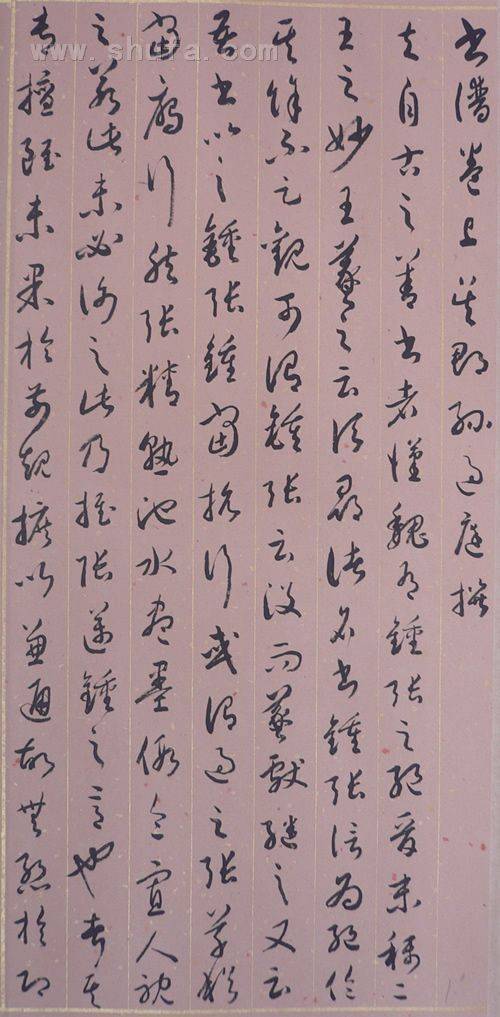 書譜卷上吳郡孫過庭撰
夫自古之善書者漢魏有鍾張之絕晉末稱二
王之妙王羲之云頃尋諸名書鍾張信為絕倫
其餘不足觀可謂鍾張云沒而羲獻繼之又云
吾書比之鍾張鍾當抗行或謂過之張草猶
當雁行然張精熟池水盡墨假令寡人耽
之若此未必謝之此乃推張邁鍾之意也考其
專擅雖未果於前規摭以兼通故無慚於即
www.shufa.com